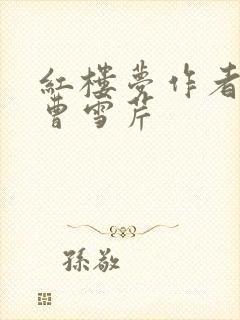 紅樓夢作者
曹雪芹
孫敬